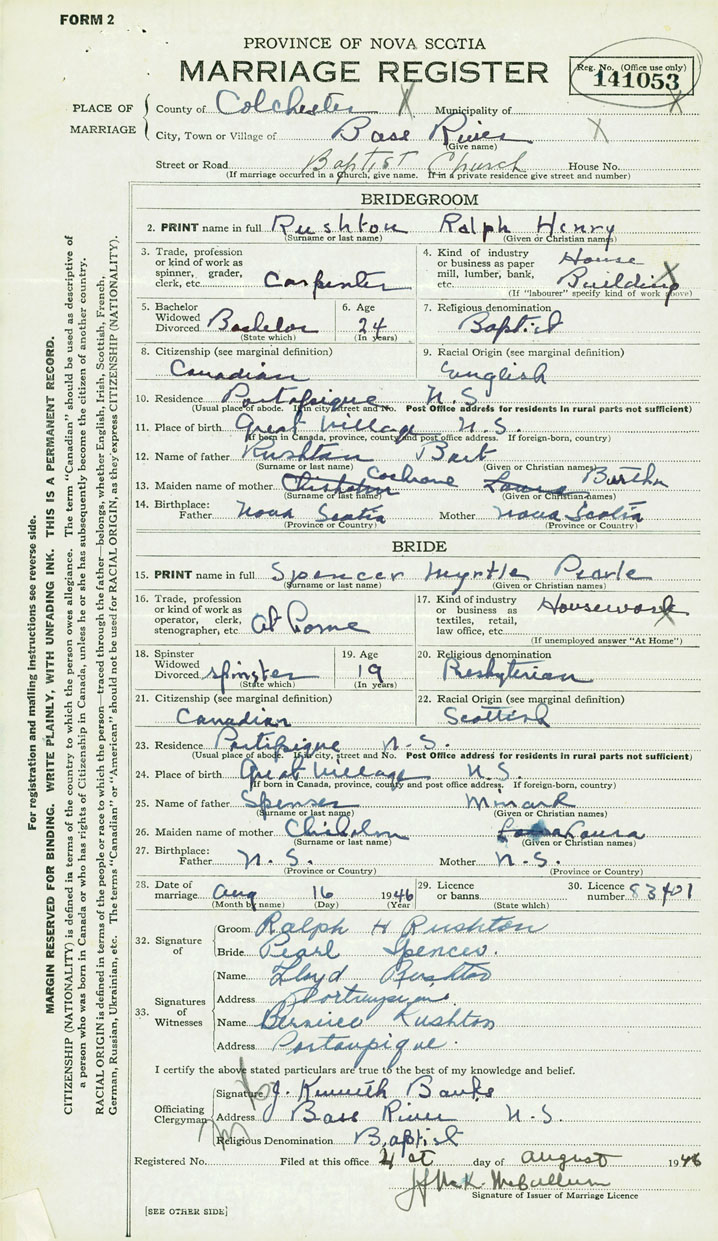 FORM 2
PROVINCE OF NOVA SCOTIA
MARRIAGE REGISTER
Reg. No. (Office use only)
141053
PLACE OF MARRIAGE
County of Colchester X Municipality of X
City, Town or Village of Bass River X
(Give name)
Street or Road Baptist Church House No.
(If marriage occurred in a Church, give name. If in a private residence give street and number)
BRIDEGROOM
2. PRINT name in full Rushton Ralph Henry
(Surname or last name) (Given or Christian names)
3. Trade, profession or kind of work as spinner, grader, clerk, etc. Carpenter
4. Kind of industry or business as paper mill, lumber, bank, etc. House Building X
(If "labourer" specify kind of work above)
5. Bachelor Widowed Divorced Bachelor
(State which)
6. Age 24
(In years)
7. Religious denomination Baptist
8. Citizenship (see marginal definition) Canadian
9. Racial Origin (see marginal definition) English
10. Residence Portapique N.S.
(Usual place of abode. If in city, street and No. Post Office address for residents in rural parts not sufficient)
11. Place of birth Great Village N.S.
(If born in Canada, province, county and post office address. If foreign-born, country)
12. Name of father Rushton Burt
(Surname or last name) (Given or Christian names)
13. Maiden name of mother Chisholm Cochrane Laura Bertha
(Surname or last name) (Given or Christian names)
14. Birthplace: Father Nova Scotia Mother Nova Scotia
(Province or Country) (Province or Country)
BRIDE
15. PRINT name in full Spencer Myrtle Pearle
(Surname or last name) (Given or Christian names)
16. Trade, profession or kind of work as operator, clerk, stenographer, etc. At Home
17. Kind of industry or business as textiles, retail, law office, etc. Housework X
(If unemployed answer "At Home")
18. Spinster Widowed Divorced spinster
(State which)
19. Age 19
(In years)
20. Religious denomination Presbyterian
21. Citizenship (see marginal definition) Canadian
22. Racial Origin (see marginal definition) Scottish
23. Residence Portipique N.S.
(Usual place of abode. If in city, street and No. Post Office address for residents in rural parts not sufficient)
24. Place of birth Great Village N.S.
(If born in Canada, province, county and post office address. If foreign-born, country)
25. Name of father Spenser Minard
(Surname or last name) (Given or Christian names)
26. Maiden name of mother Chisholm Laura
(Surname or last name) (Given or Christian names)
27. Birthplace: Father N.S. Mother N.S.
(Province or Country) (Province or Country)
28. Date of marriage Aug 16 1946
(Month by name) (Day) (Year)
29. Licence or banns
(State which)
30. Licence number 83401
32. Signature of
Groom Ralph H Rushton
Bride Pearl Spencer.
33. Signatures of Witnesses
Name Lloyd Rushton
Address
Name Bernice Rushton
Address Portaupique.
I certify the above stated particulars are true to the best of my knowledge and belief.
Officiating Clergyman
Signature J. Kenneth Banks
Address Bass River N.S.
Religious Denomination Baptist
Registered No. Filed at this office day of August 1946
McCullum
Signature of Issuer of Marriage Licence
[SEE OTHER SIDE]
For registration and mailing instructions see reverse side.
MARGIN RESERVED FOR BINDING. WRITE PLAINLY, WITH UNFADING INK. THIS IS A PERMANENT RECORD.
CITIZENSHIP (NATIONALITY) is defined in terms of the country to which the person owes allegiance. The term "Canadian" should be used as descriptive of
a person who was born in Canada or who has rights of Citizenship in Canada, unless he or she has subsequently become the citizen of another country.
RACIAL ORIGIN is defined in terms of the people or race to which the person—traced through the father—belongs, whether English, Irish, Scottish, French,
German, Russian, Ukrainian, etc. The terms "Canadian" or "American" should not be used for RACIAL ORIGIN, as they express CITIZENSHIP (NATIONALITY).